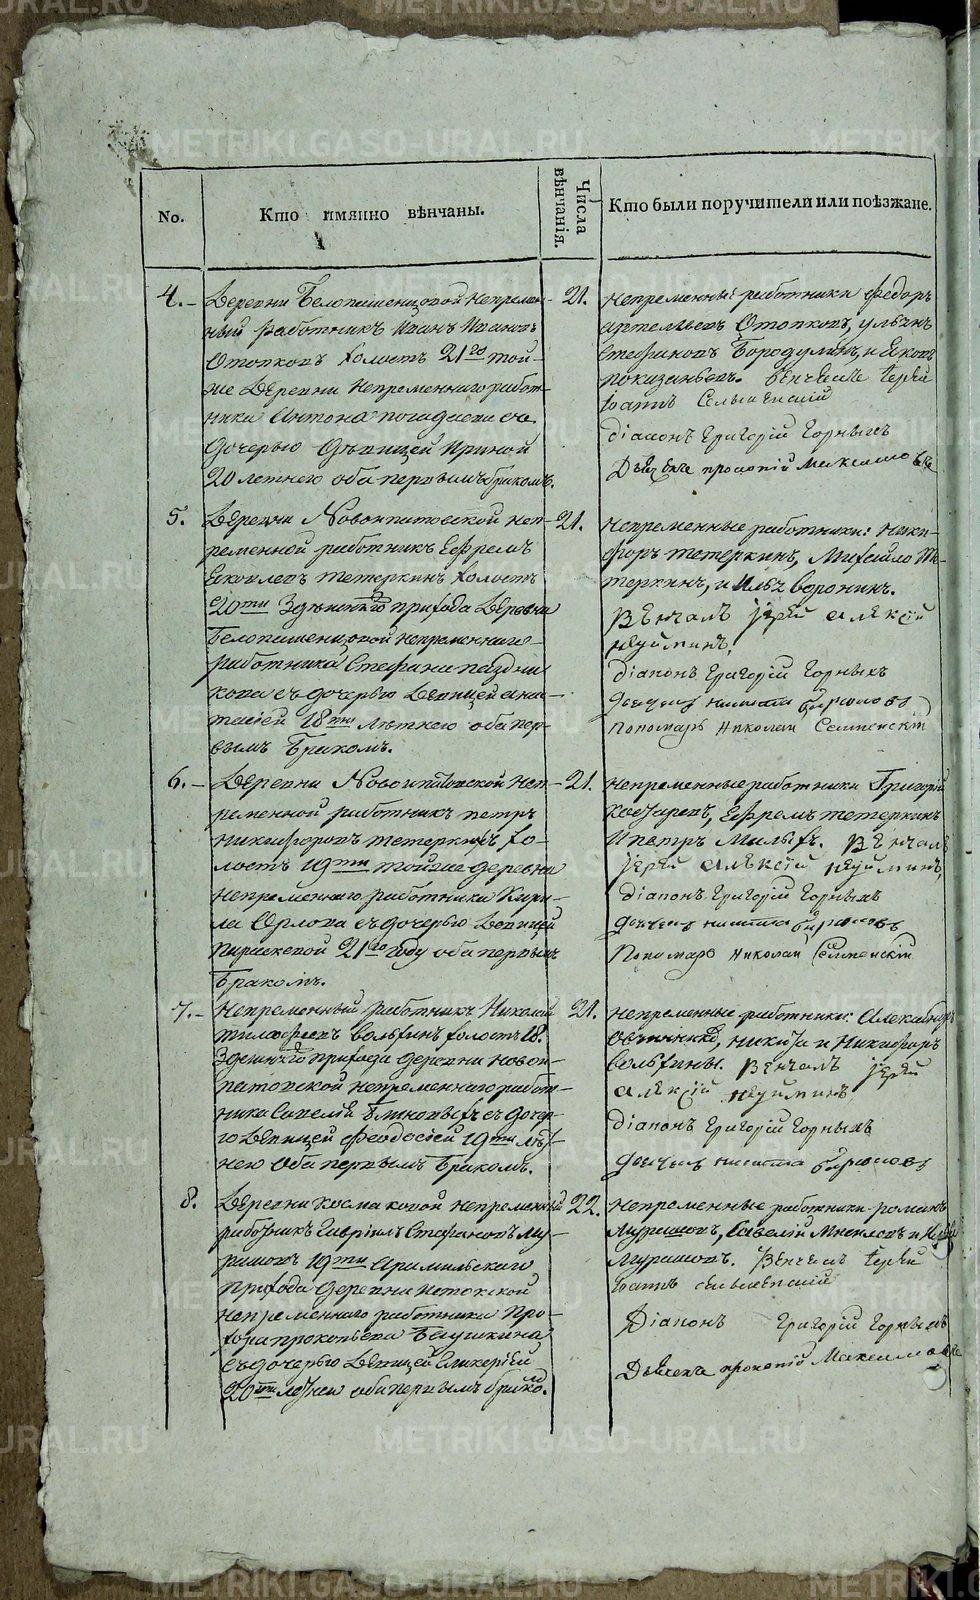 METRIKI.GASO-URAL.RU
No.
Кто имянно вѣнчаны.
Числа вѣнчанія.
Кто были поручители или поѣзжане.
4.
Деревни Белопашенцовой непремен-
ный работникъ Иванъ Ивановъ
холостъ 21го той-
же деревни непременнаго работ-
ника Антона
дочерью девицей Ириной
20 летнею оба первымъ бракомъ.
21.
непременныя работники Федоръ
Стефановъ Бородулинъ, и Яковъ
венчали Iерей
Iоаннъ
діаконъ Григорій Горныхъ
Дьячекъ прокопій Максимовъ
5.
Деревни Новоипатовской неп-
ременной работникъ Ефремъ
Яковлевъ тетеркинъ холостъ
20ти Здѣшняго прихода деревни
Белопашенцовой непременнаго
работника Стефана
съ дочерью девицей ана-
тасіей 18ти лѣтнею оба пер-
вымъ бракомъ.
21.
непременные работники: Ники-
форъ тетеркинъ, Михайло Те-
теркинъ, и Илья Воронинъ.
Вѣнчалъ Iерей алѣксій
неуйминъ,
діаконъ Григорій Горныхъ
дьячекъ никита бирюковъ
Пономарь Николай
6.
Деревни Новоипатовской неп-
ременной работникъ петръ
никифоровъ тетеркинъ хо-
лостъ 19ти тойже деревни
непременнаго работника Кири-
ла Орлова съ дочерью девицей
параскевой 21го году оба первымъ
бракомъ.
21.
непременные работники Григорій
Кочаревъ, Ефремъ тетеркинъ
и петръ Малыхъ. Вѣнчалъ
Iерей алѣксій неуйминъ,
діаконъ Григорій Горныхъ
дьячекъ никита бирюковъ
Пономарь николай
7.
Непременный работникъ Николай
тимофеевъ вольхинъ холостъ 18.
Здешняго прихода деревни новои-
патовской непременнаго работ-
ника Савелия Блиновыхъ съ дочер-
ью девицей Феодосіей 19ти лѣт-
нею оба первымъ бракомъ.
21.
непременные работники: Александръ
никита и Никифоръ
вольхины. Вѣнчалъ Iерей
алѣксій неуйминъ
діаконъ Григорій Горныхъ
дьячекъ никита бирюковъ
8.
Деревни Космаковой непременный
работникъ Гавріилъ Стефановъ Му-
рашовъ 19ти Арамильскаго
прихода деревни
непременнаго работника Про-
хора прокопьева Белушкина
съ дочерью девицей Гликеріей
20ти летней оба первымъ бракомъ.
22.
Непременные работники романъ
Мурашовъ, Савелій
Мурашовъ. Венчалъ Iерей
Iоаннъ
Діаконъ Григорій Горныхъ
Дьячекъ прокопій Максимовъ